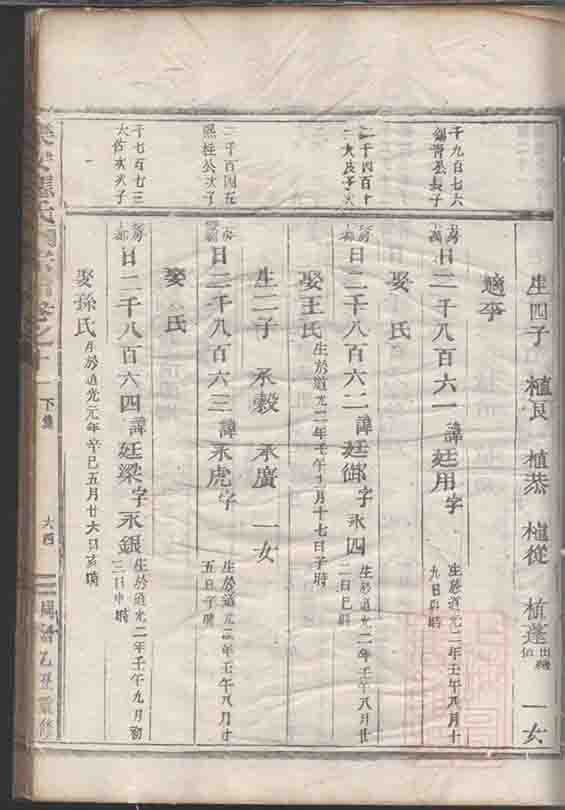 生四子 植良 植恭 植從 植蓬 出繼 一女
適李
千九百七六
錫齊公長子
日二千八百六一 諱廷用字
生於道光二年壬午八月十
九日 時
娶 氏
二千四百十
次子
日二千八百六二 諱廷鄉字永四
生於道光二年壬午八月廿
二日巳時
娶王氏 生於道光二年壬午 月十七日子時
生二子 承毅 承廣 一女
二千百四五
熙柱公次子
日二千八百六三 諱永虎字
生於道光二年壬午八月廿
五日子時
娶 氏
千七百七三
大 次子
日二千八百六四 諱廷梁字永銀
生於道光二年壬午九月初
三日申時
娶孫氏 生於道光元年辛巳五月廿六日亥時
氏 宗 卷之十一 下集 六四 民國乙丑重修